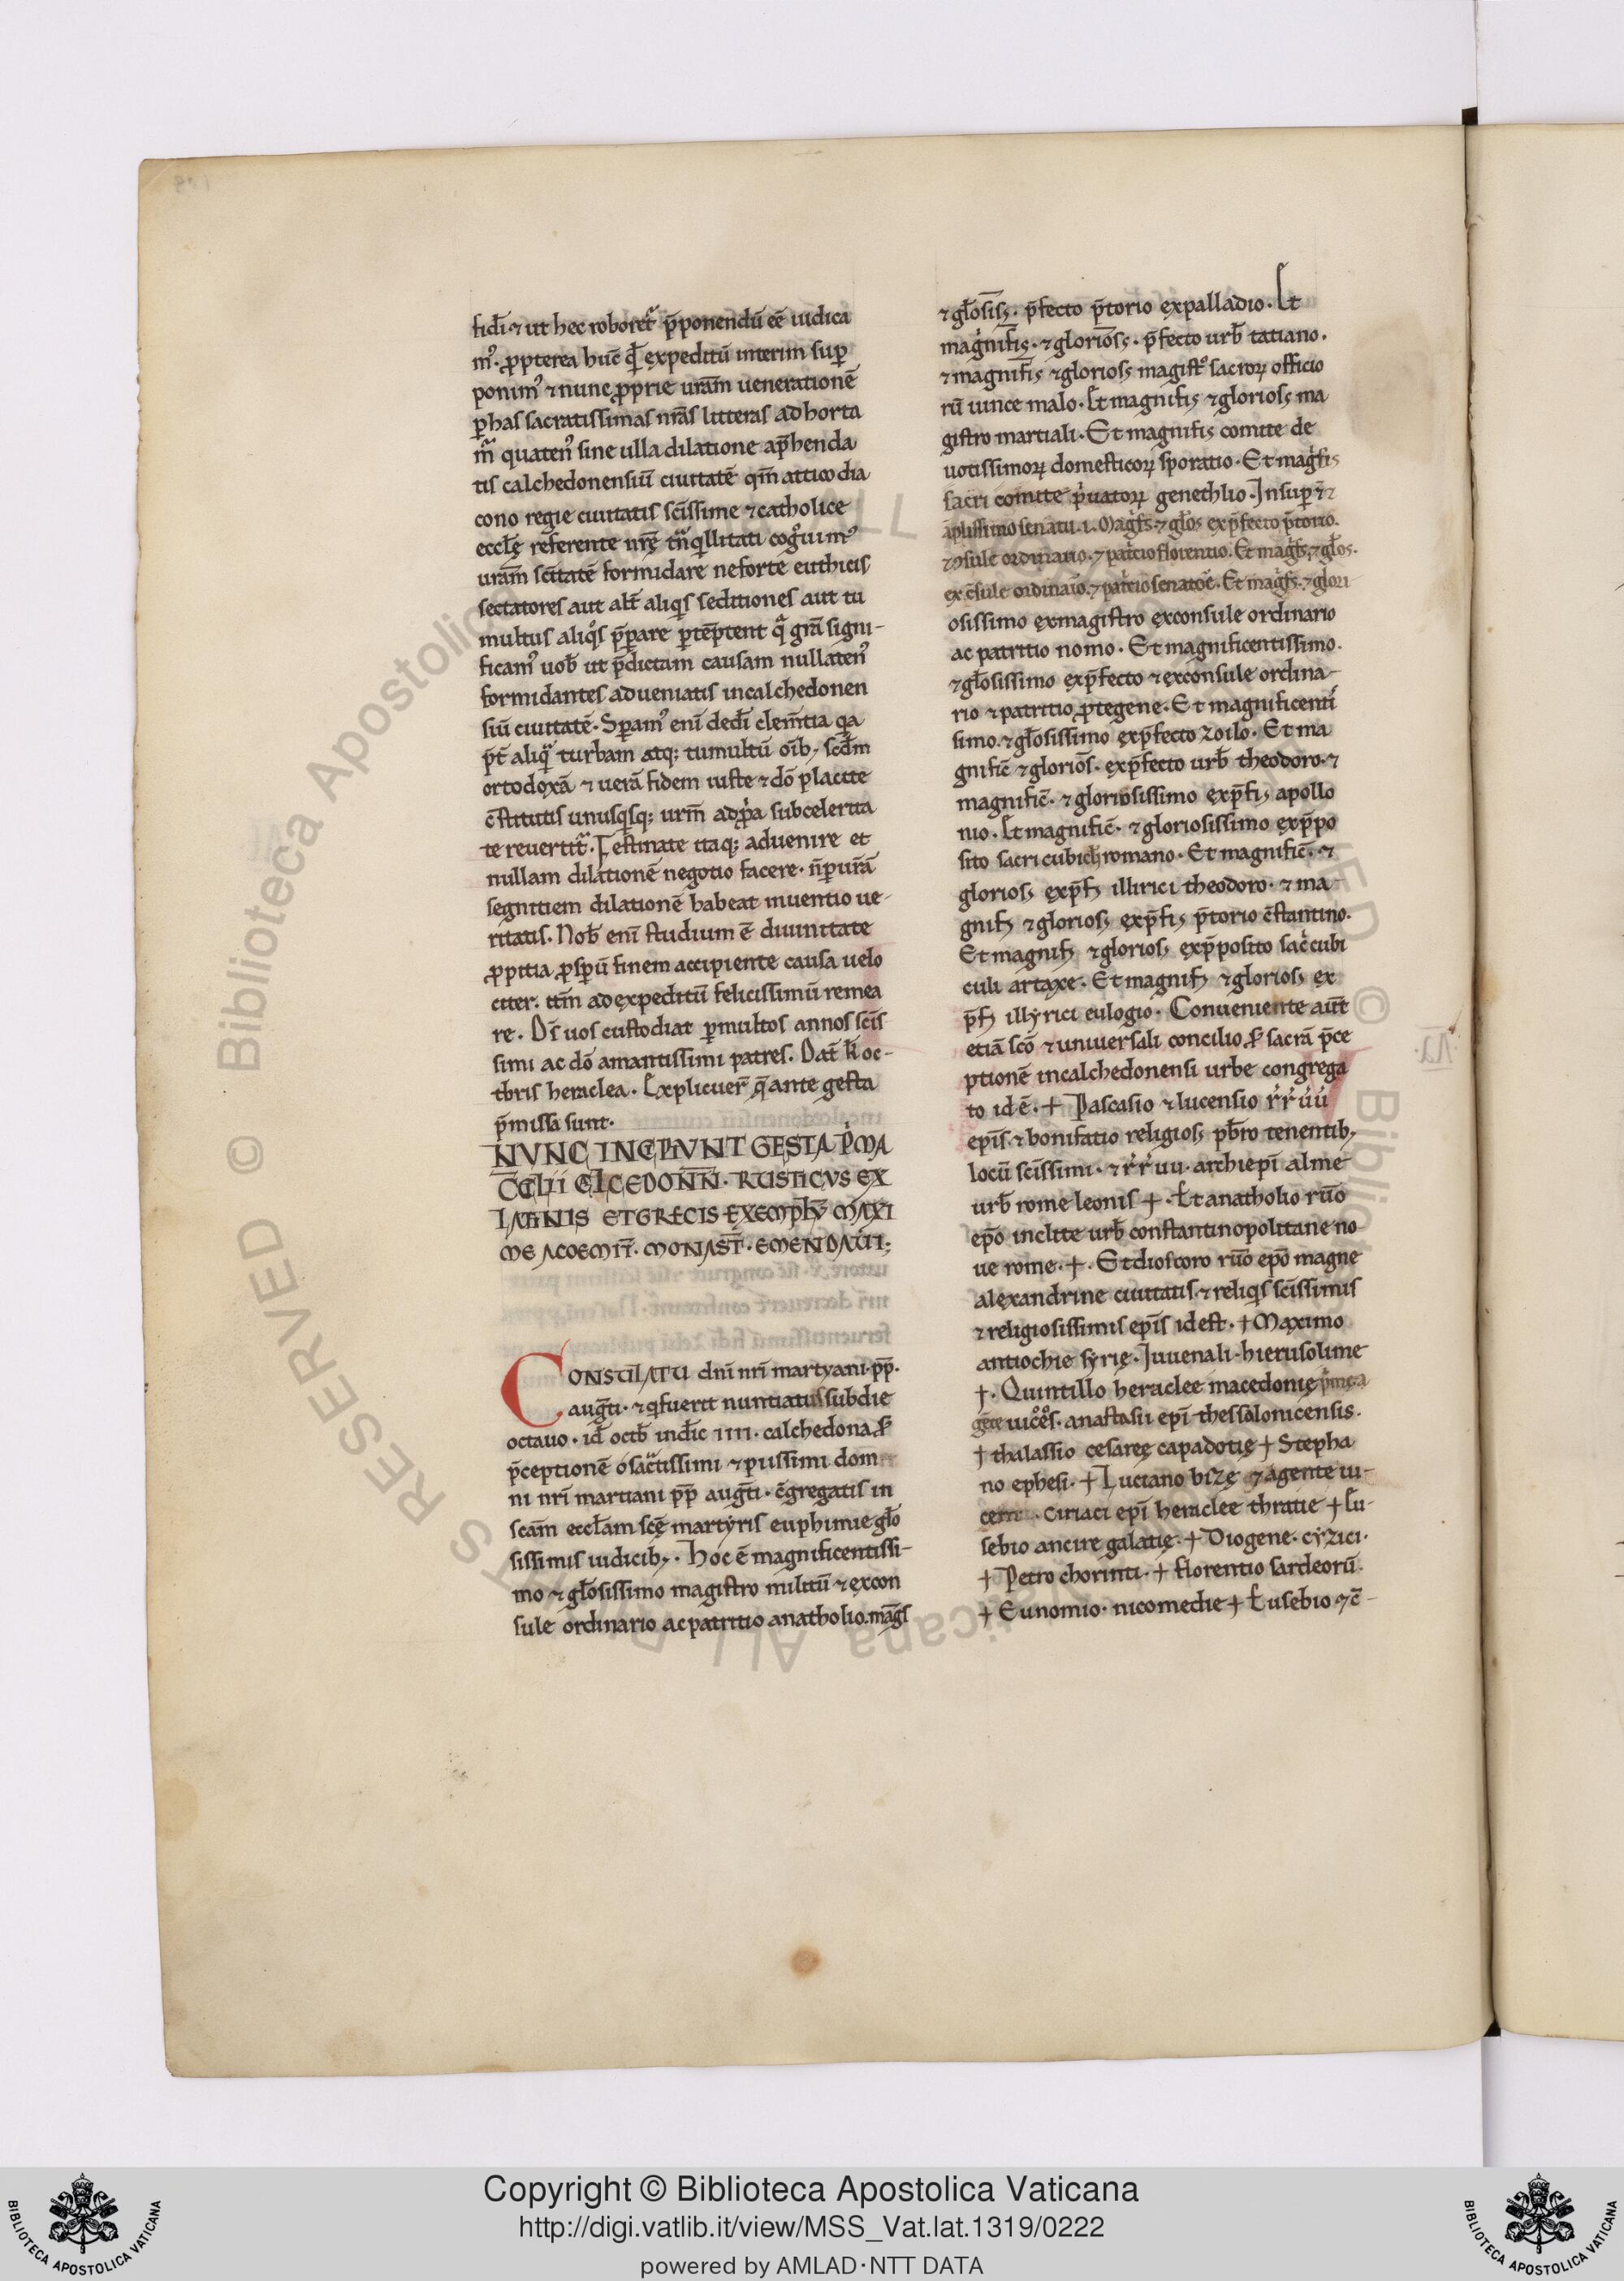 fidī ⁊ ut hec roboret᷑ p̄ponendū eē iudica
m᷒. ꝓpterea huc̄ qđ expeditū interim sup̲
ponim᷒ ⁊ nunc ꝓprie urām ueneratione᷒̄
ꝑ has sacratissimas nrās litteras adhorta
m᷑ quaten᷒ sine ulla dilatione ap̄henda
tis calchedonensiū ciuitatē qm̄ attico dia
cono regie ciuitatis scīssime ⁊ catholice
eccłę referente nrę̄ tn̄qllitati cogͦuim᷒
urām scītatē formidare ne forte euthicis
sectatores aut alt̄ aliqis seditiones aut tu
multus aliqͦs p̄parare ꝑtēptent qᷓ grā signi-
ficam᷒ uob̄ ut p̄dictam causam nullaten᷒
formidantes adueniatis in calchedonen
siū ciuitatē. Sꝑam᷒ enī dedī clemn̄tia qa
p̄t̄ aliqᷓ turbam atq; tumultū oīb; scđm
ortodoxā ⁊ uerā fidem iuste ⁊ dō placite
c̄stitutis unusqsq; urm̄ ad ꝓp̄a sub celerita
te reuertit᷑. Festinate itaq; aduenire et
nullam dilationē negotio facere. n̄ ꝑ urā
segnitiem dilationē habeat inuentio ue-
ritatis. Nob̄ enī studium ē diuinitate
ꝓpitia ꝓspū finem accipiente causa uelo
citer. itm̄ ad expeditū felicissimū remea
re. Ds̄ uos custodiat ꝑ multos annos scīs
simi ac dō amantissimi patres. Dat̄ k̄ oc-
tbris heraclea. Explicuer̄ q̄ ante gesta
p̄missa sunt.
NUNC INCIPIUNT GESTA P̄MA
CALCEDONN̄. RUSTICUS EX
LATINIS ET GRECIS EXEMPLB; MAXI
ME ACOEMIT̄. MONAST̄. EMENDAUI;
CONSULATU dnī nrī martyani. pp̄.
augt̄i. ⁊ q fuerit nuntiatus sub die
octauo. id̄ octb̄ indīc IIII. calchedona s̄
p̄ceptionē sacᷓtissimi ⁊ piissimi dom
ni nrī martiani pp̄ augt̄i. c̄gregatis in
scām eccłam scę̄ martyris euphimie głō
sissimis iudicib;. Hoc ē magnificentissi-
mo ⁊ głōsissimo magistro militū ⁊ excon
sule ordinario ac patritio anatholio. mag̅s
⁊ głōsis;. p̄fecto p̄torio ex palladio. Et
magnifis;. ⁊ gloriōs;. p̄fecto urb̄ tatiano.
⁊ magnifis; ⁊ glorios; magistͦ sacroꝝ officio
rū uince malo. Et magnifis; ⁊ glorios; ma
gistro martiali. Et magnifis; comite de
uotissimoꝝ domesticoꝝ sporatio. Et magfis;
sacri comite p̄uatoꝝ genethlio. Insup̲ ⁊
aplissimo senatu .i. Magfs. ⁊ głos ex p̄fecto p̄torio.
⁊ c̄sule ordinario. ⁊ patrcio florentio. Et magfs; ⁊ głos.
ex c̄sule ordinaīo. ⁊ patrcio senatoē. Et magfs. ⁊ glori-
osissimo exmagistro exconsule ordinario
ac patritio nomo. Et magnificentissimo.
⁊ głosissimo exp̄fecto ⁊ exconsule ordina-
rio ⁊ patritio ꝓtegene. Et magnificenti
simo. ⁊ głosissimo exp̄fecto zoilo. Et ma
gnific̄ ⁊ gloriōs. exp̄fecto urb̄ theodoro. ⁊
magnific̄. ⁊ gloriosissimo exp̄fis; apollo
nio. Et magnific̄. ⁊ gloriosissimo exp̄po
sito sacri cubicł romano. Et magnific̄. ⁊
glorios; exp̄fs; illirici theodoro. ⁊ ma-
gnifs; ⁊ glorios; exp̄fis; p̄torio c̄stantino.
Et magnifs; ⁊ glorios; exp̄posito sac̄ cubi
culi artaxe. Et magnifs; ⁊ glorios; ex
p̄fs; illyrici eulogio. Conueniente aut̄
etiā scō ⁊ uniuersali concilio s̄ sacrā p̄ce
ptionē in calchedonensi urbe congrega
to id ē. + Pascasio ⁊ lucensio r̄r̄ ūū
epīs. ⁊ bonifatio religios; pb̄ro tenentib;
locū scīssimi. ⁊ r̄r̄ uu. archiepī alme
urb̄ rome leonis +. Et anatholio rūo
epō inclite urb̄ constantinopolitane no-
ue rome. +. Et dioscoro rūo epō magne
alexandrine ciuitatis. ⁊ reliqis scīssimis
⁊ religiosissimis epīs id est. + Maximo
antiochie syrię. Iuuenali. hierusolime
+. Quintillo heraclee macedonię p̄mę a
gēte uicͤs. anastasii epī thessalonicensis.
+ thalassio cesareę capadotię + Stepha
no ephesi. + Luciano bizę ⁊ agente ui-
cem. ciriaci epī heraclee thratie + Eu-
sebio ancire galatię. + Diogene. cyzici.
+ Petro chorinti. + florentio sardeorū.
+ Eunomio. nicomedie + Eusebio ⁊ c̄-
Copyright © Biblioteca Apostolica Vaticana
http://digi.vatlib.it/view/MSS_Vat.lat.1319/0222
powered by AMLAD·NTT DATA